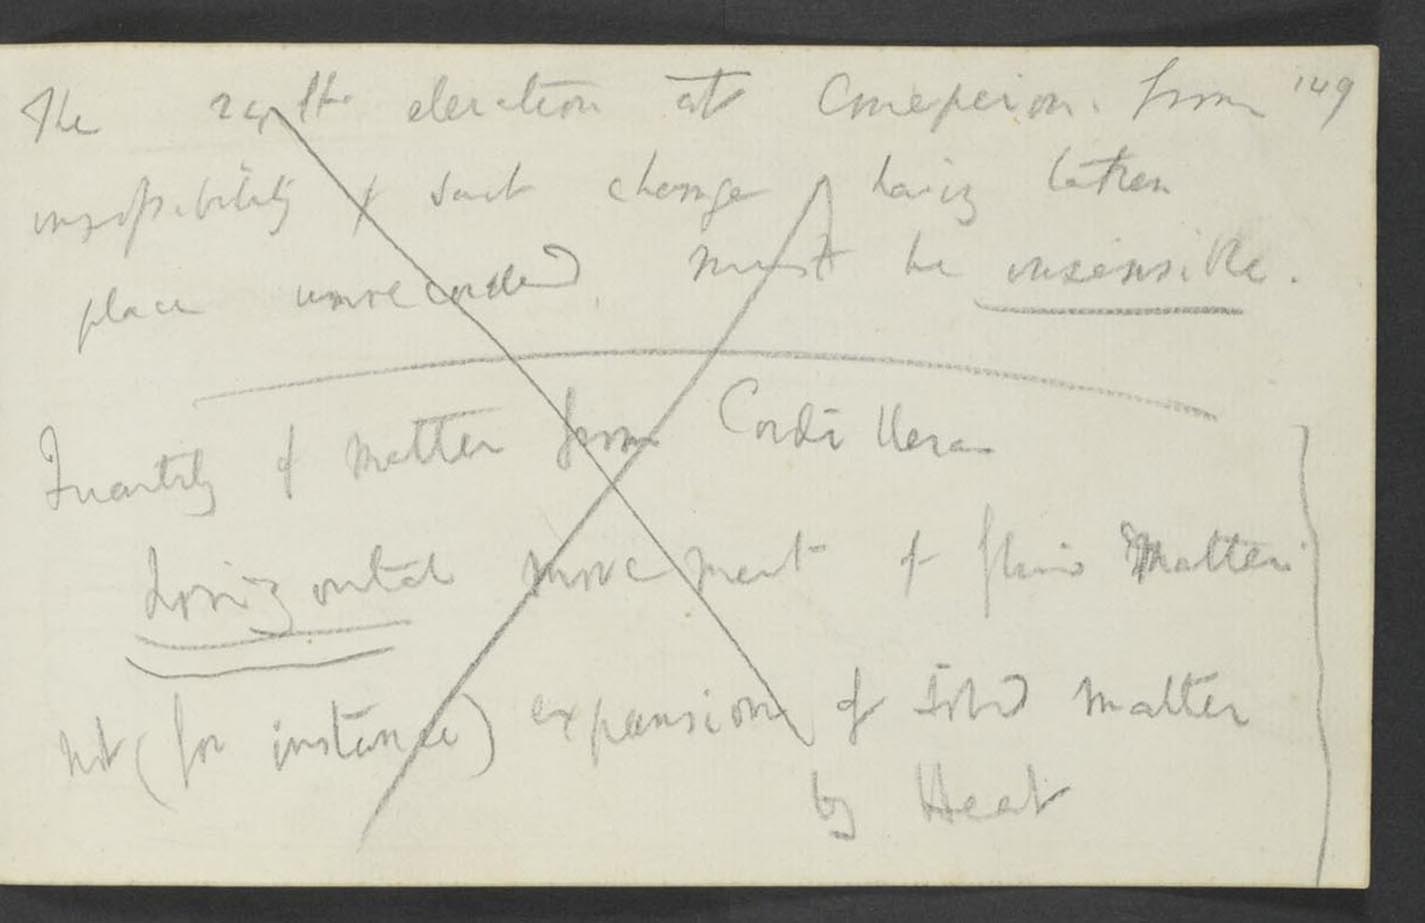 The 24 ft elevation at Concepcion. from 149
impossibility of such change having taken
place unrecorded, must be insensible.
Quantity of matter from Cordillera
horizontal movement of fluid matter
not (for instance) expansion of solid matter
by Heat